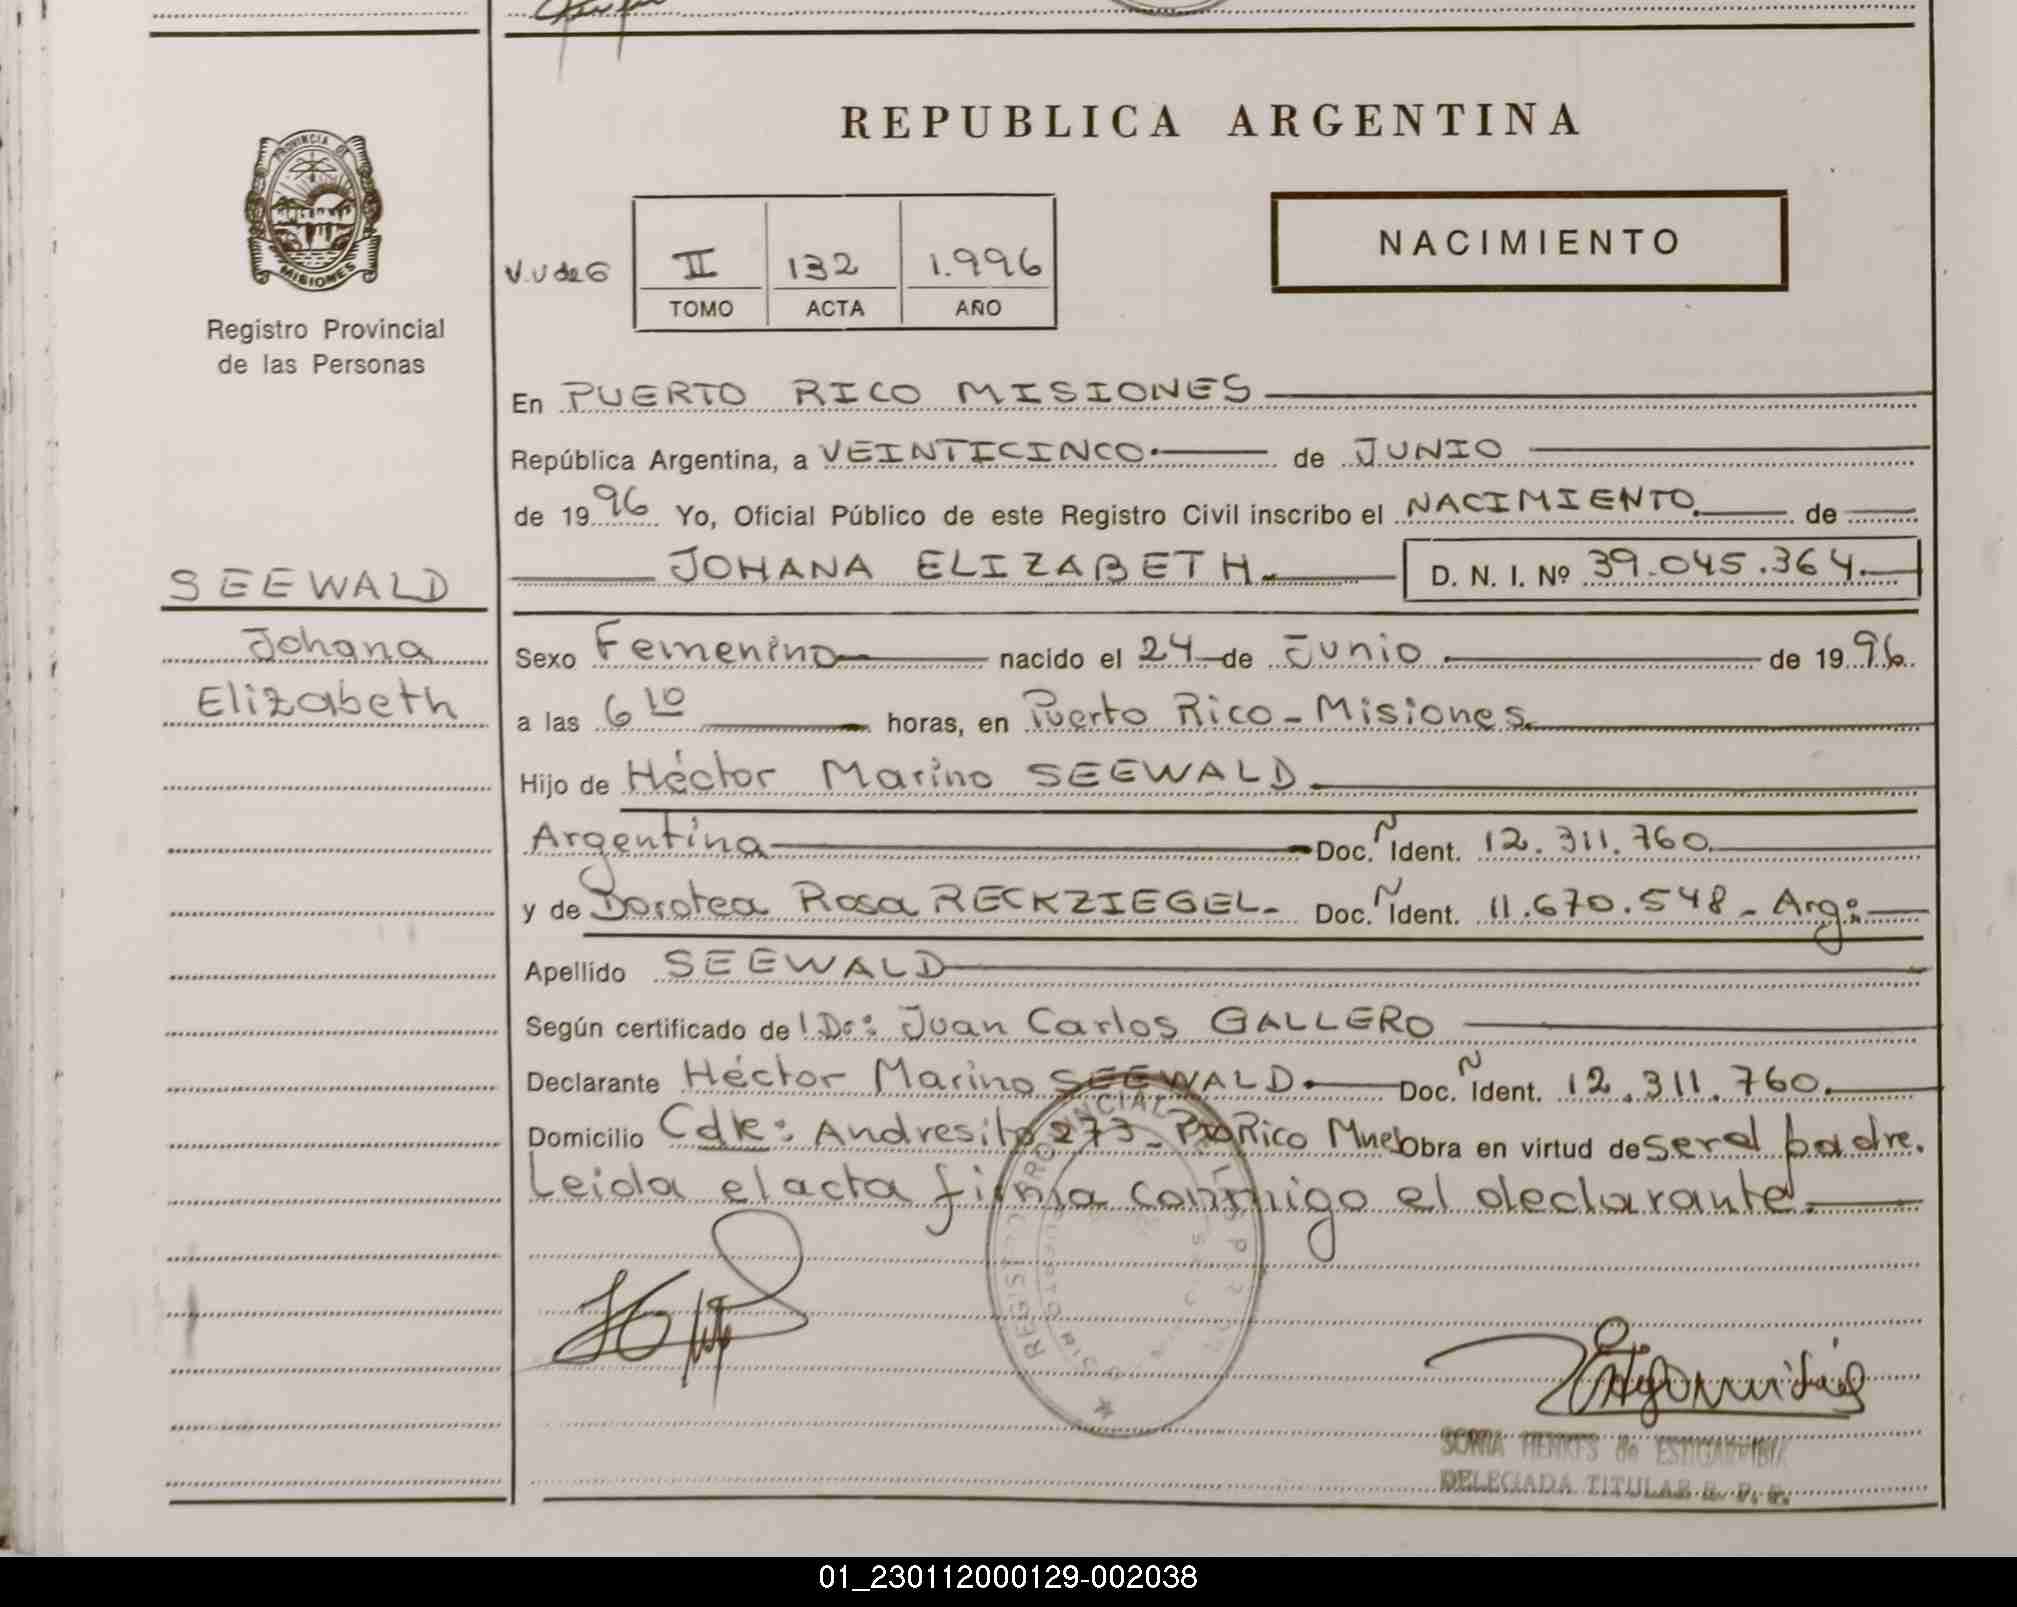 REPUBLICA ARGENTINA
PROVINCIA DE
MISIONES
Registro Provincial
de las Personas
V.U de G
II 132 1.996
TOMO ACTA AÑO
NACIMIENTO
En PUERTO RICO MISIONES
República Argentina, a VEINTICINCO de JUNIO
de 1996 Yo, Oficial Público de este Registro Civil inscribo el NACIMIENTO de
JOHANA ELIZABETH. D. N. I. Nº 39.045.364.
SEEWALD
Johana
Elizabeth
Sexo Femenino nacido el 24 de Junio de 1996.
a las 6 10 horas, en Puerto Rico - Misiones.
Hijo de Héctor Marino SEEWALD.
Argentina Doc. Ñ Ident. 12.311.760.
y de Dorotea Rosa RECKZIEGEL- Doc. Ñ Ident. 11.670.548 - Arg:
Apellido SEEWALD
Según certificado de Dr: Juan Carlos GALLERO
Declarante Héctor Marino SEEWALD. Doc. Ñ Ident. 12.311.760.
Domicilio Cdte: Andresito 273 - Pto Rico Mnes Obra en virtud de ser el padre.
Leida el acta firma conmigo el declarante.
SONIA HENKES de ESTIGARRIBIA
DELEGADA TITULAR R. P. P.
01_230112000129-002038